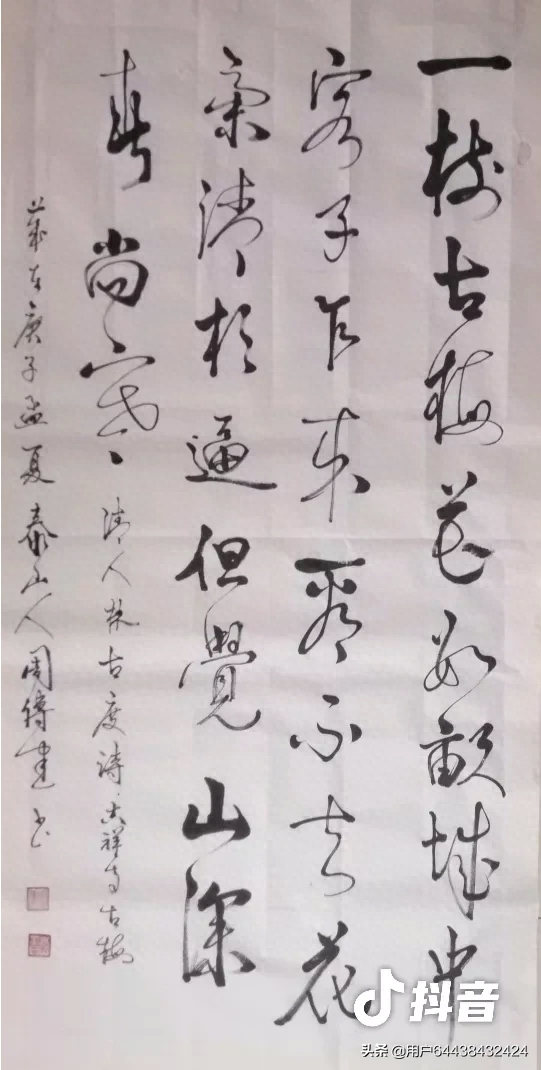 一树古梅花数畝城中
客子乍来看不知花
氣清相逼但覺山深
春尚寒 清人林古度诗 吉祥寺古梅
岁在庚子孟夏泰山人周建书
抖音
头条 @用户64438432424